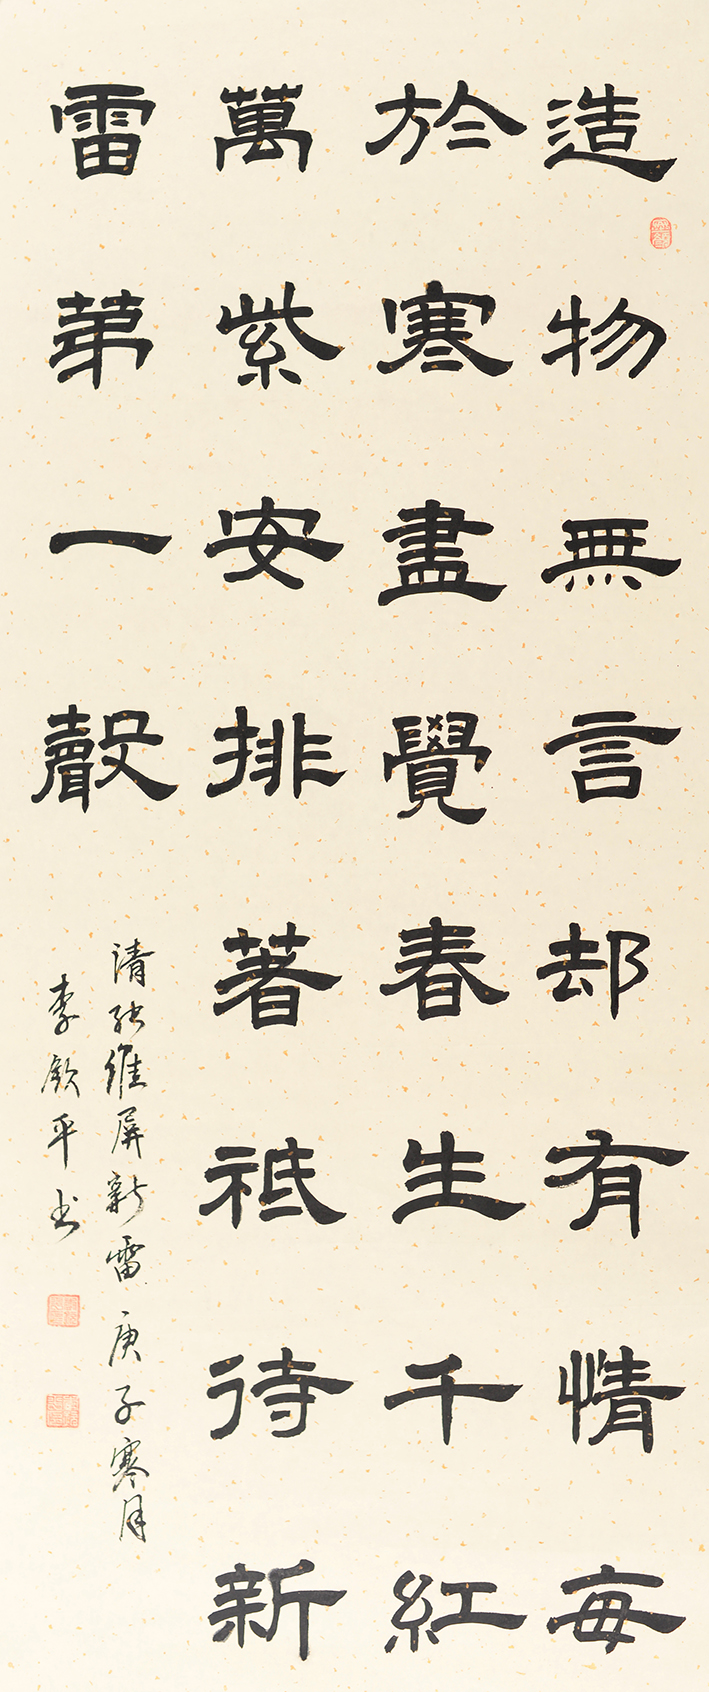 造物無言却有情每
於寒盡覺春生千紅
萬紫安排著祗待新
雷第一聲
清張維屏新雷 庚子寒月
李欽平书